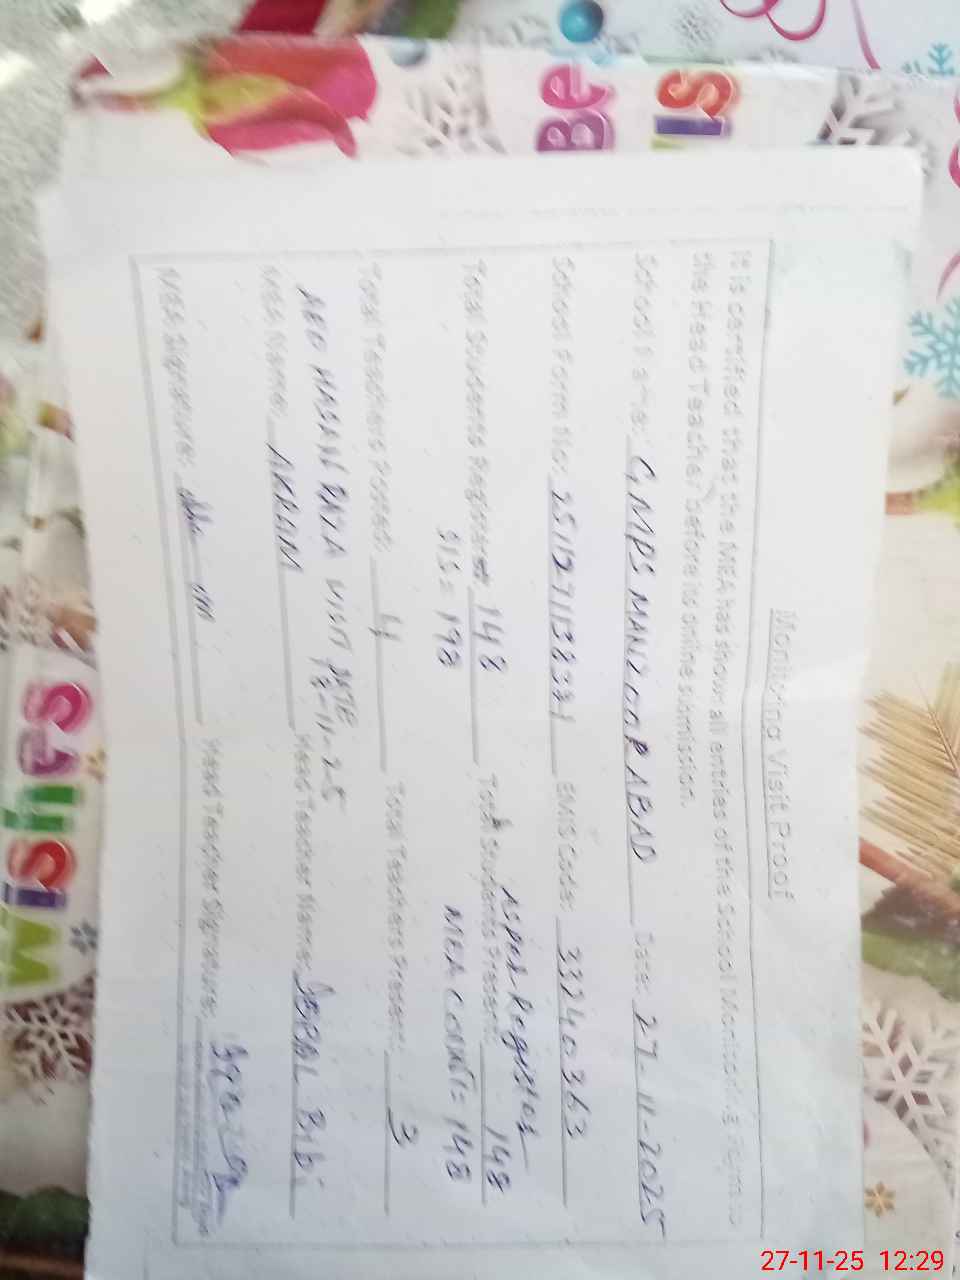 Monitoring Visit Proof
It is certified that the MEA has shown all entries of the School Monitoring Form to
the Head Teacher before its online submission.
School Name: GMPS MANZOOR ABAD Date: 27-11-2025
School Form No: EMIS Code: 33240363
Total Students Registered: 148 Total Students Present: 148
As per Register
SIS = 198 MEA COUNT = 148
Total Teachers Posted: 4 Total Teachers Present: 3
AEO HASAN RAZA VISIT DATE
18-11-25
MEA Name: AKRAM Head Teacher Name: IQBAL BIBI
MEA Signature: Head Teacher Signature:
Be
Wis
Wishes
27-11-25 12:29